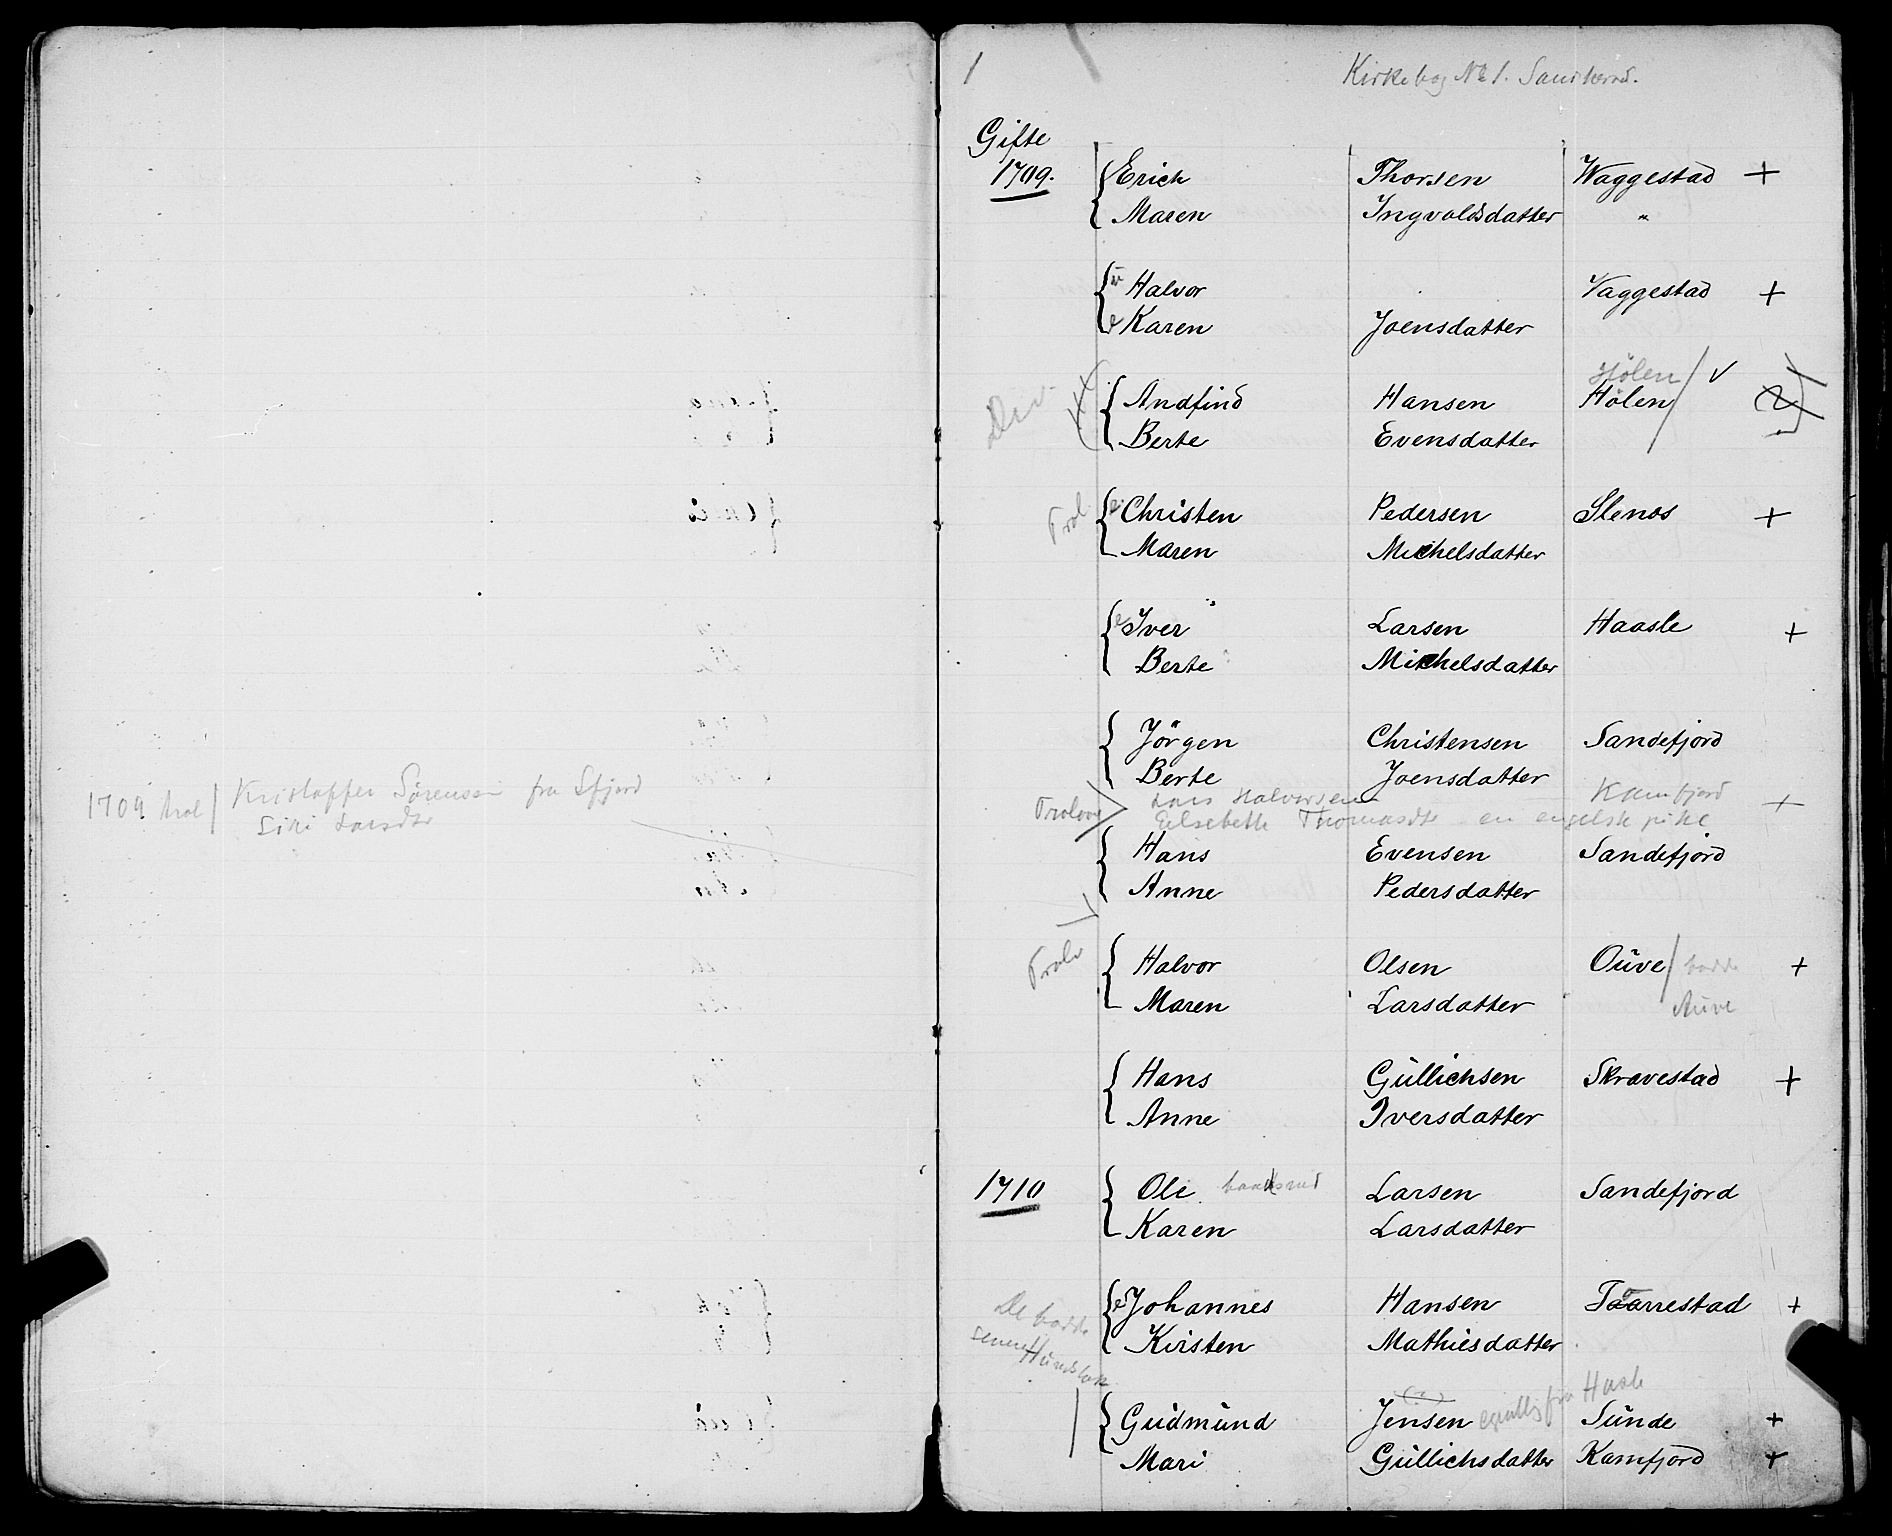 1709 trol / Kristoffer Sørensen fra Sfjord
Siri Larsdtr
1 Kirkebog No 1. Sandherred.
Gifte
1709. Erich Thorsen Waggestad +
Maren Ingvoldsdatter "
Halvor Vaggestad +
Karen Joensdatter
Hølen / v
Andfind Hansen Hølen
Berte Evensdatter
Trol Christen Pedersen Stenos +
Maren Michelsdatter
Iver Larsen Haasle +
Berte Michelsdatter
Jörgen Christensen Sandefjord
Berte Joensdatter
Trolov Lars Halvorsen Kamfjord +
Eilsebeth Thomasdtr en engelsk pike
Hans Evensen Sandefjord
Anne Pedersdatter
Trolv Halvor Olsen Oũve / bodde +
Maren Larsdatter Auve
Hans Gũllichsen Skravestad +
Anne Iversdatter
1710 Ole Larsen Sandefjord
Karen Larsdatter
Johannes Hansen Taarrestad +
De bodde
senere Kirsten Mathiesdatter
fra Haasle
Gũdmũnd Jensen Sũnde +
Mari Gũllichsdatter Kamfjord +